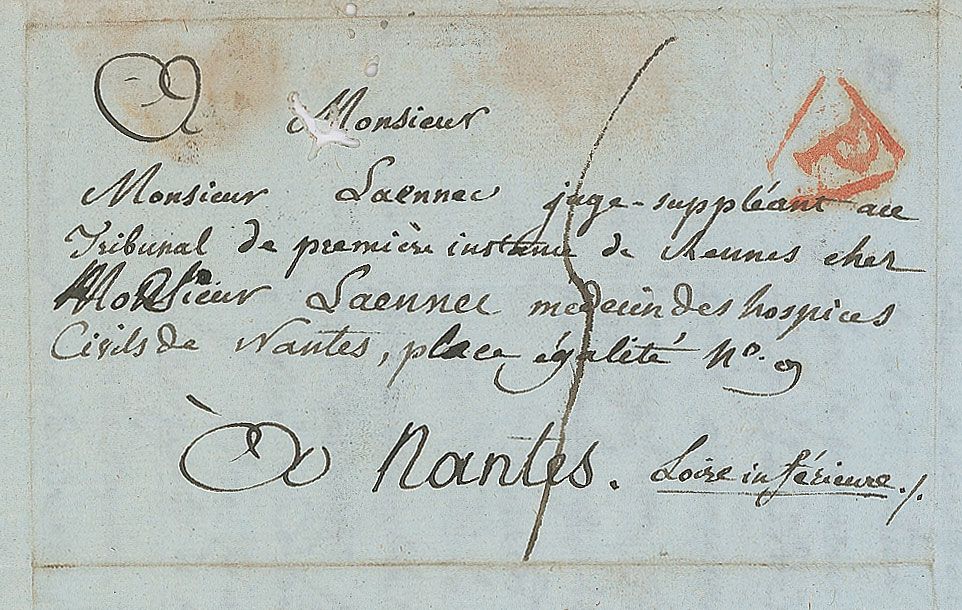 A Monsieur
Monsieur Laennec juge-suppléant au
Tribunal de première instance de Rennes chez
Monsieur Laennec medecin des hospices
Civils de Nantes, place égalité N°. 9
À Nantes. Loire inférieure./.
P